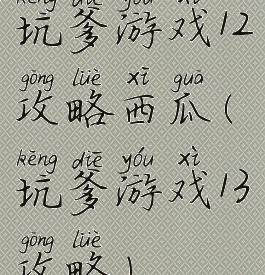 kēng diē yóu xì
坑爹游戏12
gōng lüè xī guā
攻略西瓜(
kēng diē yóu xì
坑爹游戏13
gōng lüè
攻略)